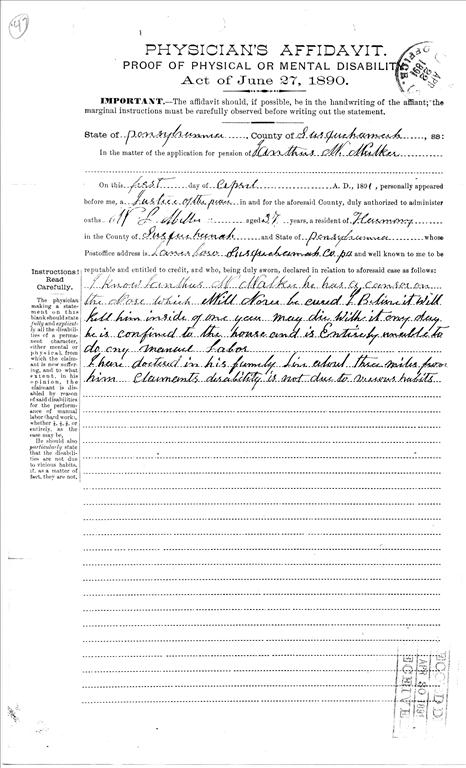 47
PHYSICIAN'S AFFIDAVIT.
PROOF OF PHYSICAL OR MENTAL DISABILIT
Act of June 27, 1890.
IMPORTANT.—The affidavit should, if possible, be in the handwriting of the affiant; the
marginal instructions must be carefully observed before writing out the statement.
State of Pennsylvania, County of Susquehannah, ss:
In the matter of the application for pension of Xanthus M. Walker
On this first day of April A. D., 1891, personally appeared
before me, a Justice of the peace in and for the aforesaid County, duly authorized to administer
oaths L Miller aged 27 years, a resident of Harmony
in the County of Susquehanah and State of Pensylvania whose
Postoffice address is Lanesboro Susquehannah Co. pa and well known to me to be
reputable and entitled to credit, and who, being duly sworn, declared in relation to aforesaid case as follows:
I know Xanthus M. Walker he has a cancer on
the Nose which Will None be cured I Belive it will
kill him inside of one year may die with it any day
he is confined to the house and is Entirely unable to
do any manuel Labor
I have doctored in his family live about three miles from
him Claiments disability is not due to viscous habits
Instructions:
Read
Carefully.
The physician
making a state-
ment on this
blank should state
fully and explicit-
ly all the disabili-
ties of a perma-
nent character,
either mental or
physical, from
which the claim-
ant is now suffer-
ing, and to what
extent, in his
opinion, the
claimant is dis-
abled by reason
of said disabilities
for the perform-
ance of manual
labor (hard work),
whether ¼, ½, ¾, or
entirely, as the
case may be.
He should also
particularly state
that the disabili-
ties are not due
to vicious habits,
if, as a matter of
fact, they are not.
APR 30 1891